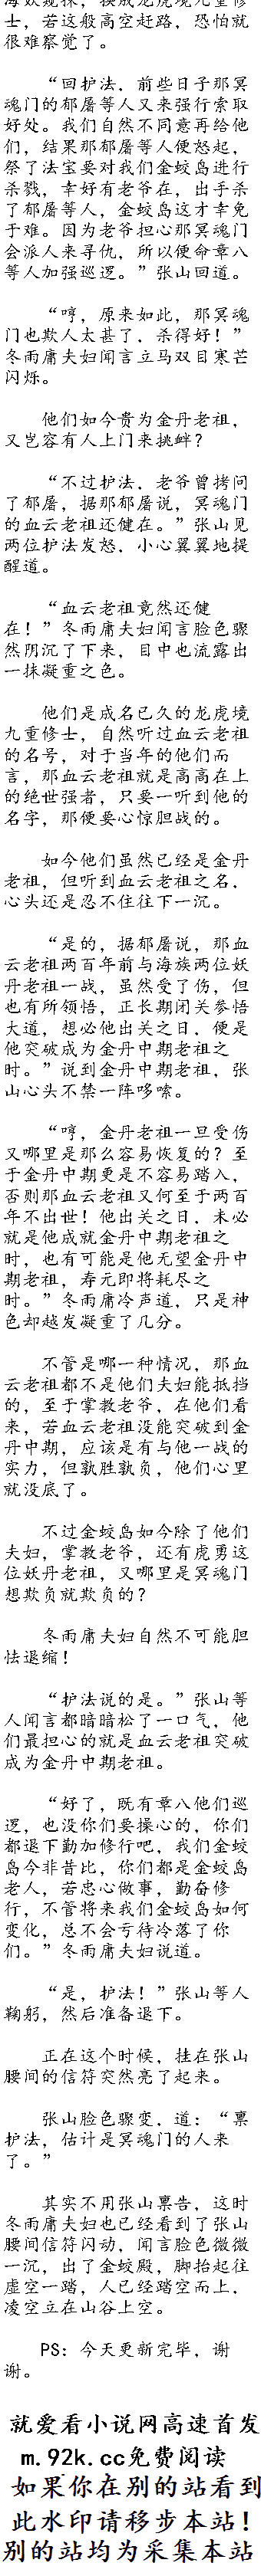 海妖窥探，换成龙虎境九重修
士，若这般高空赶路，恐怕就
很难察觉了。
“回护法，前些日子那冥
魂门的郁屠等人又来强行索取
好处。我们自然不同意再给他
们，结果那郁屠等人便怒起，
祭了法宝要对我们金蛟岛进行
杀戮，幸好有老爷在，出手杀
了郁屠等人，金蛟岛这才幸免
于难。因为老爷担心那冥魂门
会派人来寻仇，所以便命章八
等人加强巡逻。”张山回道。
“哼，原来如此，那冥魂
门也欺人太甚了，杀得好！”
冬雨庸夫妇闻言立马双目寒芒
闪烁。
他们如今贵为金丹老祖，
又岂容有人上门来挑衅？
“不过护法，老爷曾拷问
了郁屠，据那郁屠说，冥魂门
的血云老祖还健在。”张山见
两位护法发怒，小心翼翼地提
醒道。
“血云老祖竟然还健
在！”冬雨庸夫妇闻言脸色骤
然阴沉了下来，目中也流露出
一抹凝重之色。
他们是成名已久的龙虎境
九重修士，自然听过血云老祖
的名号，对于当年的他们而
言，那血云老祖就是高高在上
的绝世强者，只要一听到他的
名字，那便要心惊胆战的。
如今他们虽然已经是金丹
老祖，但听到血云老祖之名，
心头还是忍不住往下一沉。
“是的，据郁屠说，那血
云老祖两百年前与海族两位妖
丹老祖一战，虽然受了伤，但
也有所领悟，正长期闭关参悟
大道，想必他出关之日，便是
他突破成为金丹中期老祖之
时。”说到金丹中期老祖，张
山心头不禁一阵哆嗦。
“哼，金丹老祖一旦受伤
又哪里是那么容易恢复的？至
于金丹中期更是不容易踏入，
否则那血云老祖又何至于两百
年不出世！他出关之日，未必
就是他成就金丹中期老祖之
时，也有可能是他无望金丹中
期老祖，寿元即将耗尽之
时。”冬雨庸冷声道，只是神
色却越发凝重了几分。
不管是哪一种情况，那血
云老祖都不是他们夫妇能抵挡
的，至于掌教老爷，在他们看
来，若血云老祖没能突破到金
丹中期，应该是有与他一战的
实力，但孰胜孰负，他们心里
就没底了。
不过金蛟岛如今除了他们
夫妇，掌教老爷，还有虎勇这
位妖丹老祖，又哪里是冥魂门
想欺负就欺负的？
冬雨庸夫妇自然不可能胆
怯退缩！
“护法说的是。”张山等
人闻言都暗暗松了一口气，他
们最担心的就是血云老祖突破
成为金丹中期老祖。
“好了，既有章八他们巡
逻，也没你们要操心的，你们
都退下勤加修行吧，我们金蛟
岛今非昔比，你们都是金蛟岛
老人，若忠心做事，勤奋修
行，不管将来我们金蛟岛如何
变化，总不会亏待冷落了你
们。”冬雨庸夫妇说道。
“是，护法！”张山等人
鞠躬，然后准备退下。
正在这个时候，挂在张山
腰间的信符突然亮了起来。
张山脸色骤变，道：“禀
护法，估计是冥魂门的人来
了。”
其实不用张山禀告，这时
冬雨庸夫妇也已经看到了张山
腰间信符闪动，闻言脸色微微
一沉，出了金蛟殿，脚抬起往
虚空一踏，人已经踏空而上，
凌空立在山谷上空。
PS：今天更新完毕，谢
谢。
就爱看小说网高速首发
m.92k.cc免费阅读
如果你在别的站看到
此水印请移步本站！
别的站均为采集本站